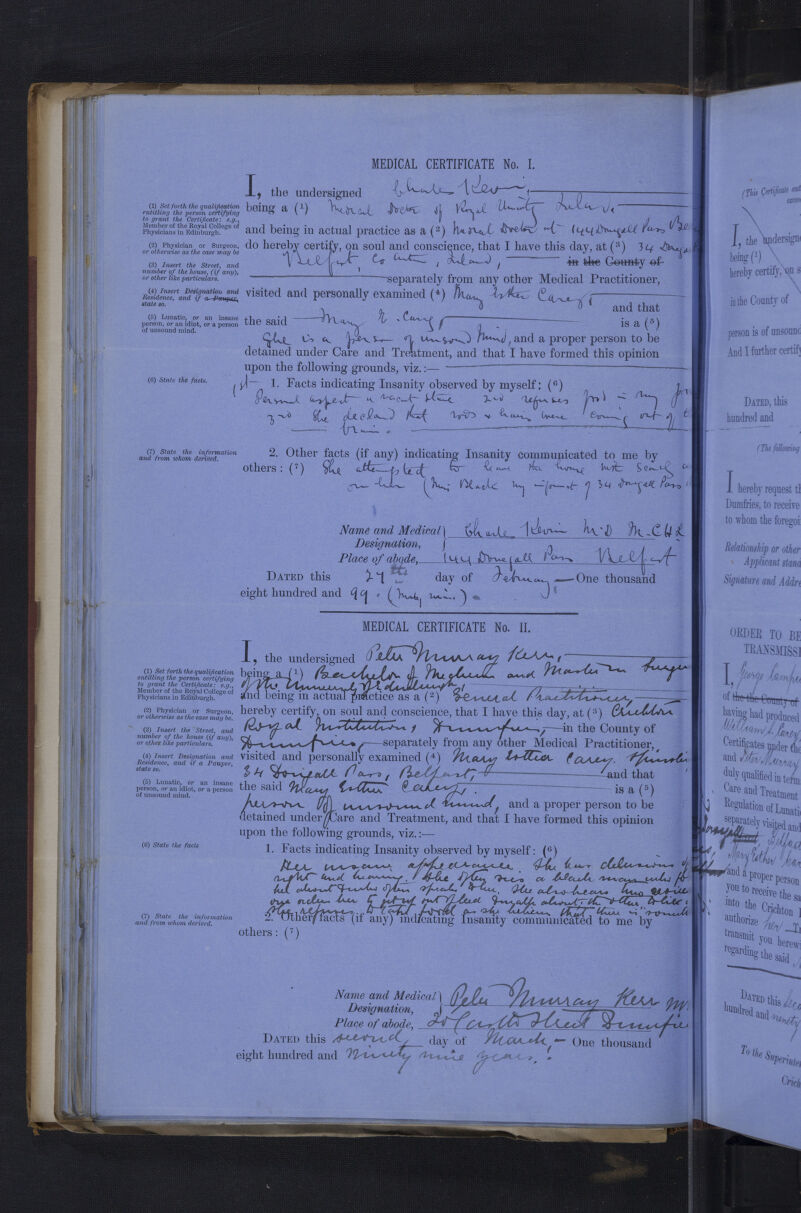 MEDICAL CERTIFICATE No. I.
I, the undersigned Charles Kevin,
(1) Set forth the qualification
entitling the person certifying
to grant the Certificate: e.g.,
Member of the Royal College of
Physicians in Edinburgh.
being a (1) Medical Doctor of Royal University Ireland
and being in actual practice as a (2) Medical Doctor at 144 Donegall Pass
(2) Physician or Surgeon,
or otherwise as the case may be
do hereby certify, on soul and conscience, that I have this day, at (3) 34
(3) Insert the Street, and
number of the house, (if any),
or other like particulars.
Belfast, Co Antrim, Ireland, in the County of
separately from any other Medical Practitioner,
(4) Insert Designation and
Residence, and if a Pauper,
state so.
visited and personally examined (4) Mary Esther Carey
and that
(5) Lunatic, or an insane
person, or an idiot, or a person
of unsound mind.
the said Mary E. Carey is a (5)
She is a person of unsound mind, and a proper person to be
detained under Care and Treatment, and that I have formed this opinion
upon the following grounds, viz.:—
(6) State the facts.
1st 1. Facts indicating Insanity observed by myself: (6)
Personal aspect a vacant stare and refuses food in my
and she declared that rods & hairs were coming out of
brain.
(7) State the information
and from whom derived.
2. Other facts (if any) indicating Insanity communicated to me by
others: (7) She attempted to leave the house with
on her (Mrs Black my informant of 34 Donegall Pass
Name and Medical
Designation,
Charles Kevin M.D M.CH
Place of abode, 144 Donegall Pass Belfast
DATED this 27th day of February — One thousand
eight hundred and 99. (Ninety nine.)
MEDICAL CERTIFICATE No. II.
I, the undersigned Peter Murray Kerr,
(1) Set forth the qualification
entitling the person certifying
to grant the Certificate: e.g.,
Member of the Royal College of
Physicians in Edinburgh.
being a (1) Bachelor of Medicine and Master in Surgery
of the University of Edinburgh
and being in actual practice as a (2) General Practitioner
(2) Physician or Surgeon,
or otherwise as the case may be.
hereby certify, on soul and conscience, that I have this day, at (3) Crichton
(3) Insert the Street, and
number of the house (if any),
or other like particulars.
Royal Institution, Dumfries, in the County of
Dumfries, separately from any other Medical Practitioner,
(4) Insert Designation and
Residence, and if a Pauper,
state so.
visited and personally examined (4) Mary Esther Carey, Spinster
34 Donegall Pass, Belfast, and that
(5) Lunatic, or an insane
person, or an idiot, or a person
of unsound mind.
the said Mary Esther Carey, is a (5)
person of unsound mind, and a proper person to be
detained under Care and Treatment, and that I have formed this opinion
upon the following grounds, viz.:—
(6) State the facts
1. Facts indicating Insanity observed by myself: (6)
Her insane appearance. She has delusions of
sight and hearing. She often sees a black man
often speaks to her. She also hears
She refuses to take food as she believes that there is
(7) State the information
and from whom derived.
2. Other facts (if any) indicating Insanity communicated to me by
others: (7)
Name and Medical
Designation,
Peter Murray Kerr
Place of abode, 20 Castle Street Dumfries
DATED this second day of March, — One thousand
eight hundred and Ninety nine years.
(This Certificate
I, the undersigned
being (1)
hereby certify, on
in the County of
person is of unsound
And I further certify
DATED, this
hundred and
(The following
I hereby request
Dumfries, to receive
to whom the foregoi
Relationship or other
Applicant stand
Signature and Addre
ORDER TO BE
TRANSMISSI
I, George
of the the County of
having had produced
William J. Carey
Certificates under the
and Peter Murray
duly qualified in term
Care and Treatment
Regulation of Lunati
separately visited and
Mary Esther
and a proper person
you to receive the sa
into the Crichton
authorize her
transmit you herewi
regarding the said
DATED this
hundred and ninety
To the Superinte
Crich